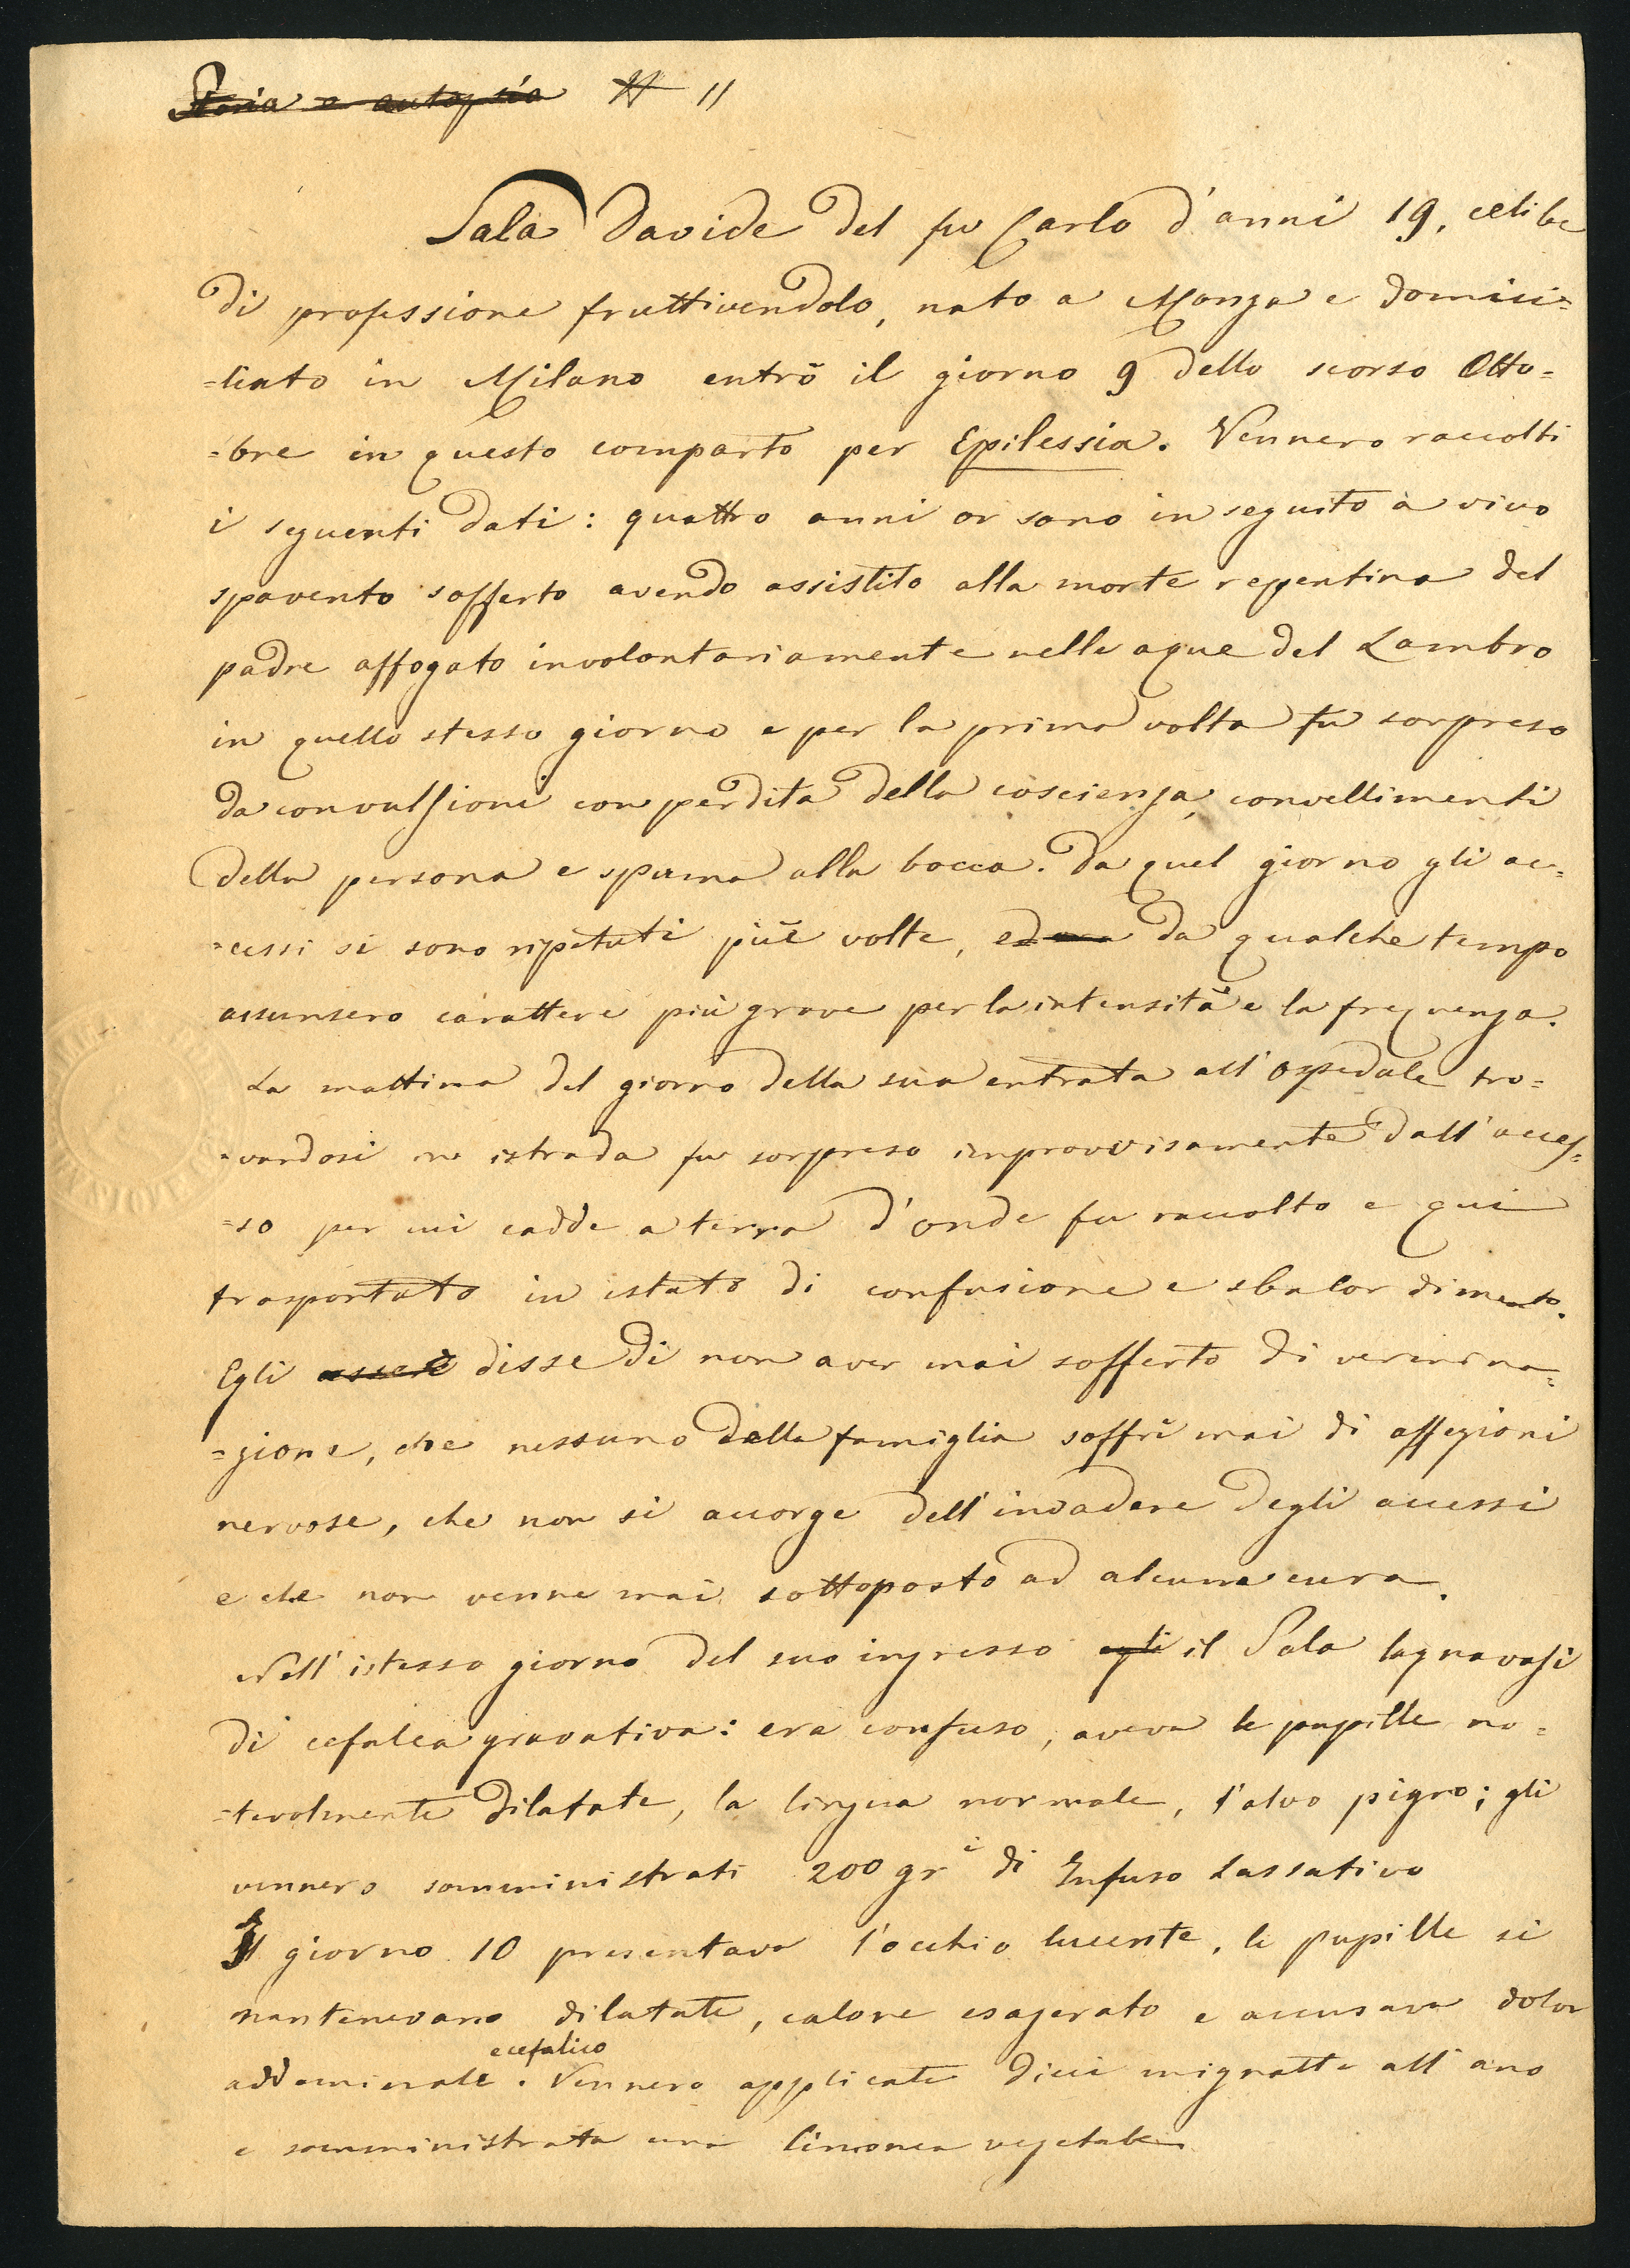 Storia e autopsia # 11
Sala Davide del fu Carlo d'anni 19, celibe
di professione fruttivendolo, nato a Monza e domici=
=liato in Milano entrò il giorno 9 dello scorso Otto=
=bre in questo comparto per Epilessia. Vennero raccolti
i seguenti dati: quattro anni or sono in seguito a vivo
spavento sofferto avendo assistito alla morte reppentina del
padre affogato involontariamente nelle aque del Lambro
in quello stesso giorno e per la prima volta fu sorpreso
da convulsioni con perdita della coscienza, convellimenti
della persona e spuma alla bocca. Da quel giorno gli ac=
=cessi si sono ripetuti più volte, ed ora da qualche tempo
assunsero carattere più grave per la intensità e la frequenza.
La mattina del giorno della sua entrata all'ospedale tro=
=vandosi in istrada fu sorpreso improvvisamente dall'acces=
=so per cui cadde a terra d'onde fu raccolto e qui
trasportato in istato di confusione e sbalordimento.
Egli disse di non aver mai sofferto di vermina=
=zione, che nessuno della famiglia soffrì mai di affezioni
nervose, che non si accorge dell'invadere degli accessi
e che non venne mai sottoposto ad alcuna cura.
Nell'istesso giorno del suo ingresso egli il Sala lagnavasi
di cefalea gravativa: era confuso, aveva le pupille no=
=tevolmente dilatate, la lingua normale, l'alvo pigro; gli
vennero somministrati 200 gri di Infuso Lassativo
Il giorno 10 presentava l'occhio lucente, le pupille si
mantenevano dilatate, calore esagerato e accusava dolor
e cefalico
addominale. Vennero applicate dieci mignatte all'ano
e somministrata una limonea vegetale